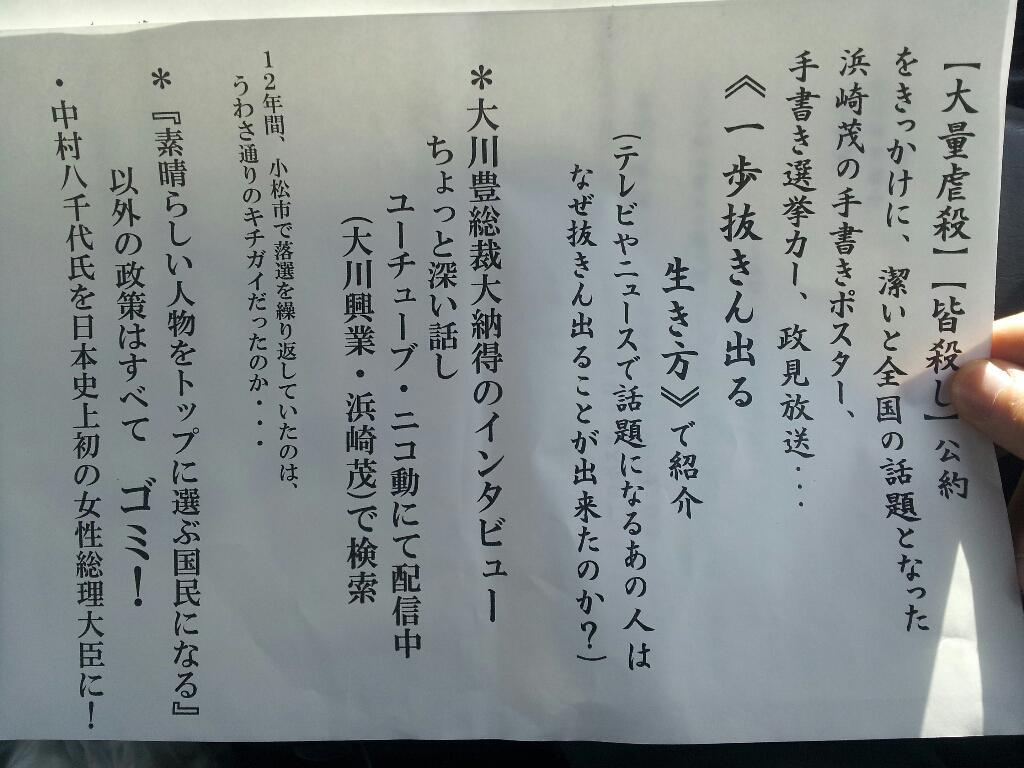 【大量虐殺】【皆殺し】公約
をきっかけに、潔いと全国の話題となった
浜崎茂の手書きポスター、
手書き選挙カー、政見放送...
《一歩抜きん出る
生き方》で紹介
(テレビやニュースで話題になるあの人は
なぜ抜きん出ることが出来たのか?)
*大川豊総裁大納得のインタビュー
ちょっと深い話し
ユーチューブ・ニコ動にて配信中
(大川興業・浜崎茂)で検索
12年間、小松市で落選を繰り返していたのは、
うわさ通りのキチガイだったのか・・・
*『素晴らしい人物をトップに選ぶ国民になる』
以外の政策はすべて ゴミ!
・中村八千代氏を日本史上初の女性総理大臣に!